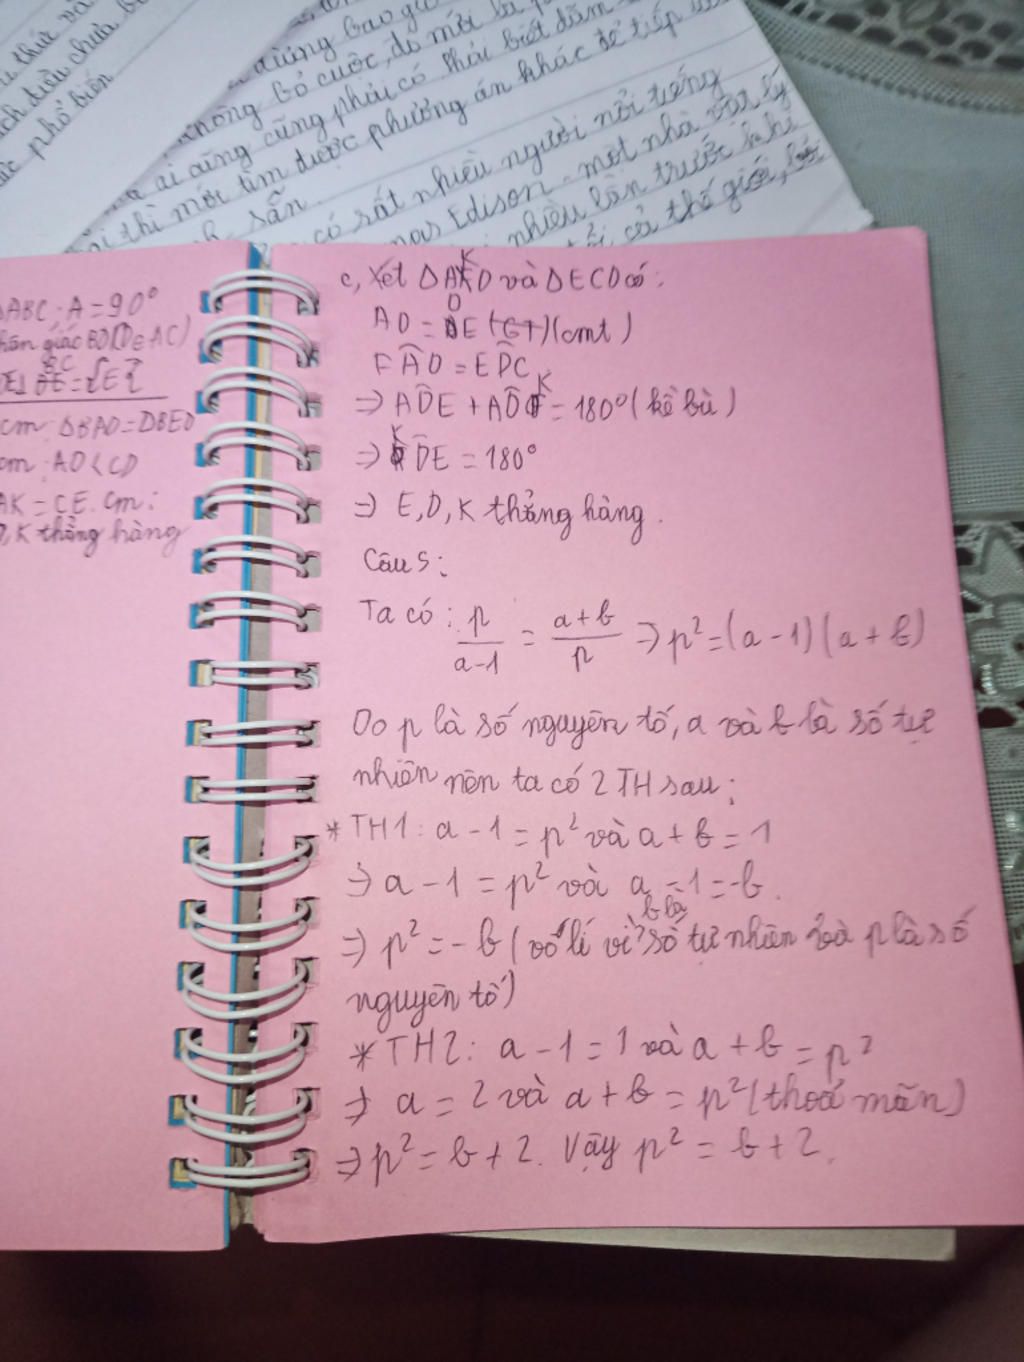 thức và
ách điều chưa b
phổ biến
dừng bao giờ
không bỏ cuộc, đó mới là
ai cũng cũng phải có phải biết
thì mới tìm được phương án khác để tiếp
sẵn.
có rất nhiều người nổi tiếng
Edison - một nhà vật lý
nhiều lần trước khi
cả thế giới,
ΔABC; A = 90°
phân giác BD (D ∈ AC)
DE⊥ BC = {E}
cm: ΔBAD = DBED
cm: AD < CD
AK = CE. Cm:
D, K thẳng hàng
c, Xét ΔAKD và ΔECD có:
AD = DE (GT) (cmt)
FÂD = EDC
⇒ ADE + ADK = 180° (kề bù)
⇒ KDE = 180°
⇒ E, D, K thẳng hàng.
Câu 5:
Ta có: p/(a-1) = (a+b)/p ⇒ p² = (a-1)(a+b)
Do p là số nguyên tố, a và b là số tự
nhiên nên ta có 2 TH sau:
* TH1: a - 1 = p² và a + b = 1
⇒ a - 1 = p² và a - 1 = -b.
⇒ p² = -b (vô lí vì b là số tự nhiên và p là số
nguyên tố)
* TH2: a - 1 = 1 và a + b = p²
⇒ a = 2 và a + b = p² (thoả mãn)
⇒ p² = b + 2. Vậy p² = b + 2.